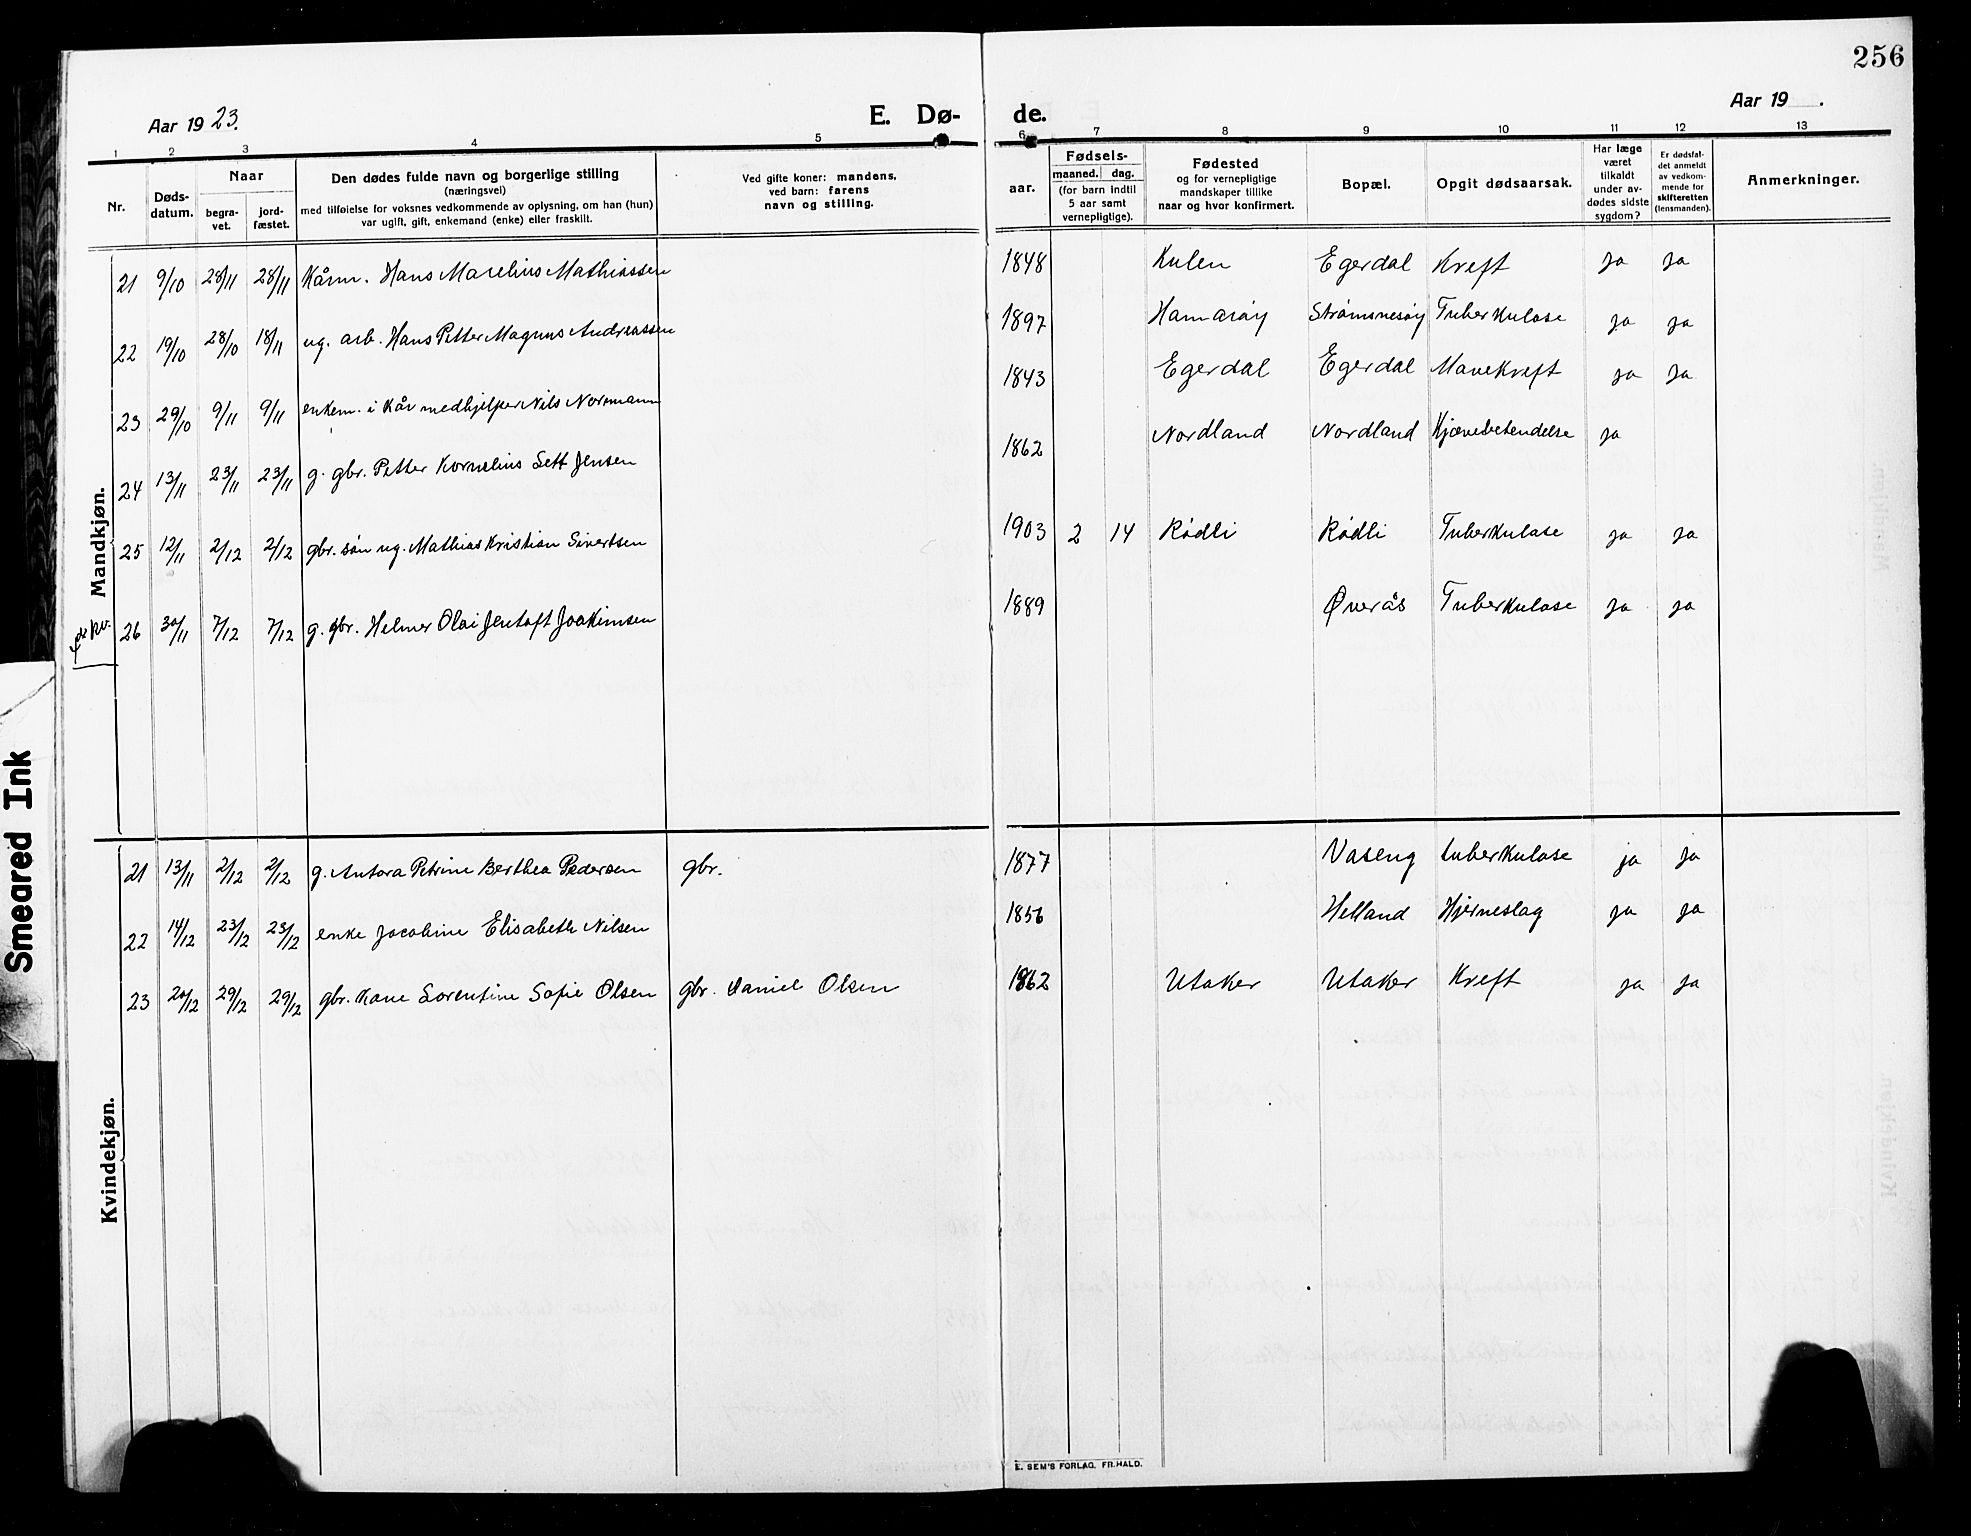 256
Aar 1923.
E. Dø-
de.
Aar 19 .
1 2 3 4 5
6 7 8 9 10 11 12 13
Nr.
Døds-
datum.
Naar
begra-
vet.
jord-
fæstet.
Den dødes fulde navn og borgerlige stilling
(næringsvei)
med tilføielse for voksnes vedkommende av oplysning, om han (hun)
var ugift, gift, enkemand (enke) eller fraskilt.
Ved gifte koner: mandens,
ved barn: farens
navn og stilling.
aar.
Fødsels-
maaned. dag.
(for barn indtil
5 aar samt
vernepligtige).
Fødested
og for vernepligtige
mandskaper tillike
naar og hvor konfirmert.
Bopæl.
Opgit dødsaarsak.
Har læge
været
tilkaldt
under av-
dødes sidste
sygdom?
Er dødsfal-
det anmeldt
av vedkom-
mende for
skifteretten
(lensmanden).
Anmerkninger.
Mandkjøn.
21 9/10 28/11 28/11 Kårm. Hans Marelius Mathiassen 1848 Kulen Egerdal Kreft ja ja
22 19/10 28/10 18/11 ug. arb. Hans Petter Magnus Andreassen 1897 Hamarøy Strømsnesøy Tuberkulose ja ja
23 29/10 9/11 9/11 enkem. i kår medhjelper Nils Normann 1843 Egerdal Egerdal Mavekreft ja ja
24 13/11 23/11 23/11 g. gbr. Petter Kornelius Sett Jensen 1862 Nordland Nordland Kjævebetendelse ja
25 12/11 2/12 2/12 gbr. søn ug. Mathias Kristian Sivertsen 1903 2 14 Rødli Rødli Tuberkulose ja ja
26 30/11 7/12 7/12 g. gbr. Helmer Olai Jentoft Joakimsen 1889 Øverås Tuberkulose ja ja
Kvindekjøn.
21 13/11 2/12 2/12 g. Antora Petrine Berthea Pedersen gbr. 1877 Vaseng tuberkulose ja ja
22 14/12 23/12 23/12 enke Jacobine Elisabeth Nilsen 1856 Helland Hjerneslag ja ja
23 20/12 29/12 29/12 gbr. kone Lorentine Sofie Olsen gbr. Daniel Olsen 1862 Utaker Utaker Kreft ja ja
E. SEM'S FORLAG, FR.HALD.
Smeared Ink